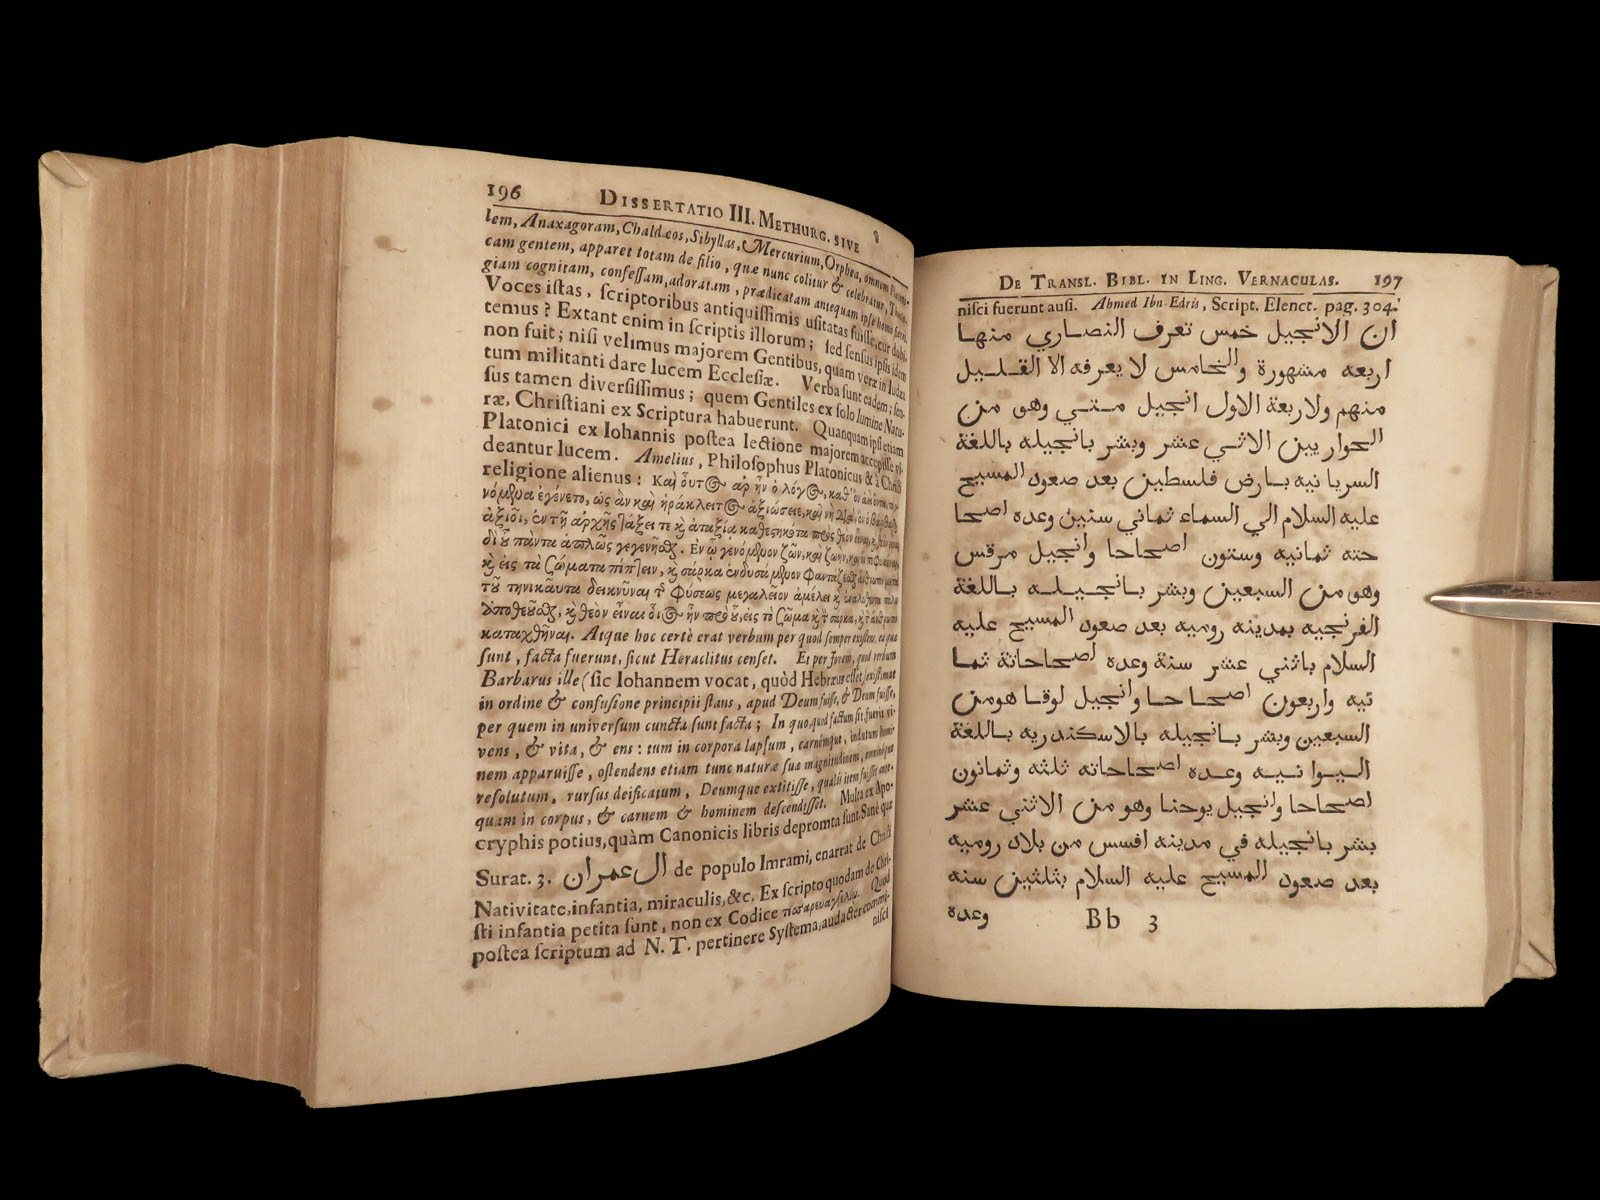 196 DISSERTATIO III. METHURG. SIVE
lem, Anaxagoram, Chaldæos, Sibyllas, Mercurium, Orphea, omnem
cam gentem, apparet totam de filio, quæ nunc colitur & celebratur,
giam cognitam, confeſſam, adoratam, prædicatam antequam ipſe homo
Voces iſtas, ſcriptoribus antiquiſſimis uſitatas fuiſſe, cur dubi-
temus? Extant enim in ſcriptis illorum; ſed ſenſus ipſis idem
non fuit; niſi velimus majorem Gentibus, quam veræ in Iudæa
tum militanti dare lucem Eccleſiæ. Verba ſunt eadem; ſen-
ſus tamen diverſiſſimus; quem Gentiles ex ſolo lumine Natu-
ræ, Chriſtiani ex Scriptura habuerunt. Quanquam ipſi etiam
Platonici ex Iohannis poſtea lectione majorem accepiſſe vi-
deantur lucem. Amelius, Philoſophus Platonicus & à Chriſti
religione alienus: Καὶ οὗτος ἄρ ἦν ὁ λόγος, καθ' ὃν
ἐγένετο, ὡς ἂν καὶ ἡράκλειτος ἀξιώσειε, καὶ νὴ
ἀξιοῖ, ἐν τῇ ἀρχῆς τάξει τε κ̀ ἀταξία καθεστηκότα πρὸς θεὸν
δι' οὗ πάντα ἁπλῶς γεγενῆσθαι. Ἐν ᾧ γενόμενον ζῶν, καὶ ζωὴν,
κ̀ εἰς τὰ ζώματα πίπτειν, κ̀ σάρκα ἐνδυσάμενον φαντάζεσθαι
τηνικαῦτα δεικνῦναι τ̃ φύσεως μεγαλεῖον ἀμέλει κ̀
κ̀ θεὸν εἶναι οἷος ἦν πρὸ τοῦ, εἰς τὸ ζῶμα κ̀ τ̃ σάρκα, κ̀
καταχθῆναι. Atque hoc certè erat verbum per quod ſemper exiſtens,
ſunt, facta fuerunt, ſicut Heraclitus cenſet. Et per Jovem, quod verbum
Barbarus ille (ſic Iohannem vocat, quòd Hebræus eſſet) exiſtimat
in ordine & confuſione principii ſtans, apud Deum fuiſſe, & Deum fuiſſe,
per quem in univerſum cuncta ſunt facta; In quo, quod factum ſit, fuerit vi-
vens, & vita, & ens: tum in corpora lapſum, carnémque, indutum homi-
nem apparuiſſe, oſtendens etiam tunc naturæ ſuæ magnitudinem, omninóque
reſolutum, rurſus deificatum, Deumque extitiſſe, qualis item fuiſſet ante-
quam in corpus, & carnem & hominem deſcendiſſet. Multa ex Apo-
cryphis potius, quàm Canonicis libris depromta ſunt. Sanè quæ
Surat. 3. ال عمران de populo Imrami, enarrat de Chriſti
Nativitate, infantia, miraculis, &c. Ex ſcripto quodam de Chri-
ſti infantia petita ſunt, non ex Codice Quod
poſtea ſcriptum ad N. T. pertinere Syſtema, audacter commi-
niſci
DE TRANSL. BIBL. IN LING. VERNACULAS. 197
niſci fuerunt auſi. Ahmed Ibn-Edris, Script. Elenct. pag. 304.
ان الانجيل خمس تعرف النصاري منها
اربعه مشهورة والخامس لا يعرفه الا القليل
منهم ولاربعة الاول انجيل متي وهو من
الحواريين الاثني عشر وبشر بانجيله باللغة
السريانيه بارض فلسطين بعد صعود المسيح
عليه السلام الي السماء ثماني سنين وعده اصحا
حته ثمانيه وستون اصحاحا وانجيل مرقس
وهو من السبعين وبشر بانجيله باللغة
الفرنجيه بمدينه روميه بعد صعود المسيح عليه
السلام باثني عشر سنة وعده اصحاحاتة ثما
نيه واربعون اصحاحا وانجيل لوقا هو من
السبعين وبشر بانجيله بالاسكندريه باللغة
اليوانيه وعده اصحاحاته ثلثه وثمانون
اصحاحا وانجيل يوحنا وهو من الاثني عشر
بشر بانجيله في مدينه افسس من بلاد روميه
بعد صعود المسيح عليه السلام بثلثين سنه
Bb 3 وعده